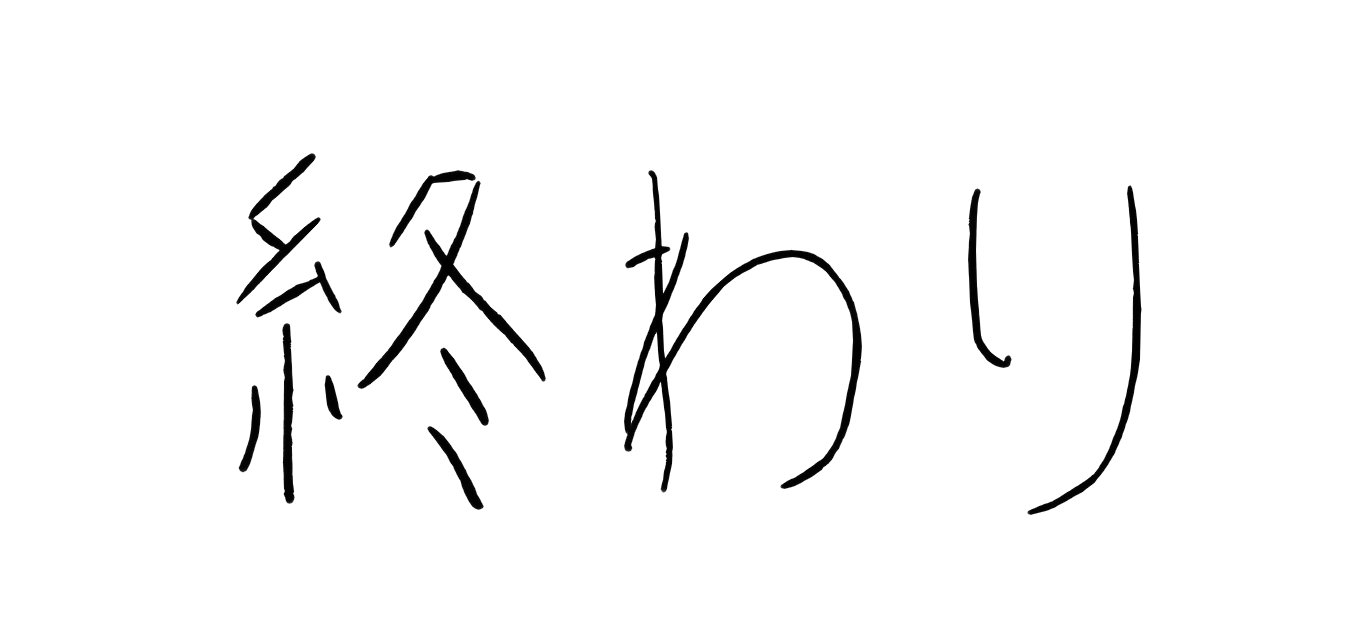 終わり